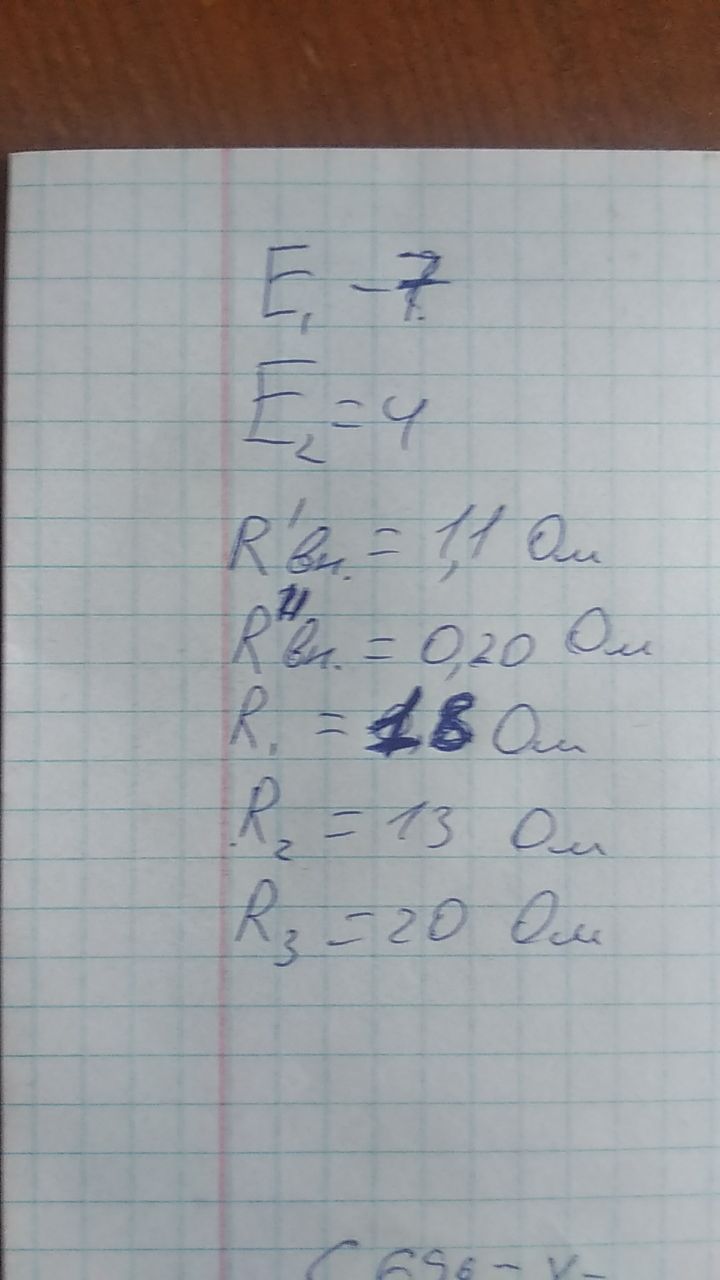 E₁ – 7
E₂ = 4
R'вн. = 1,1 Ом
R"вн. = 0,20 Ом
R₁ = 18 Ом
R₂ = 13 Ом
R₃ = 20 Ом